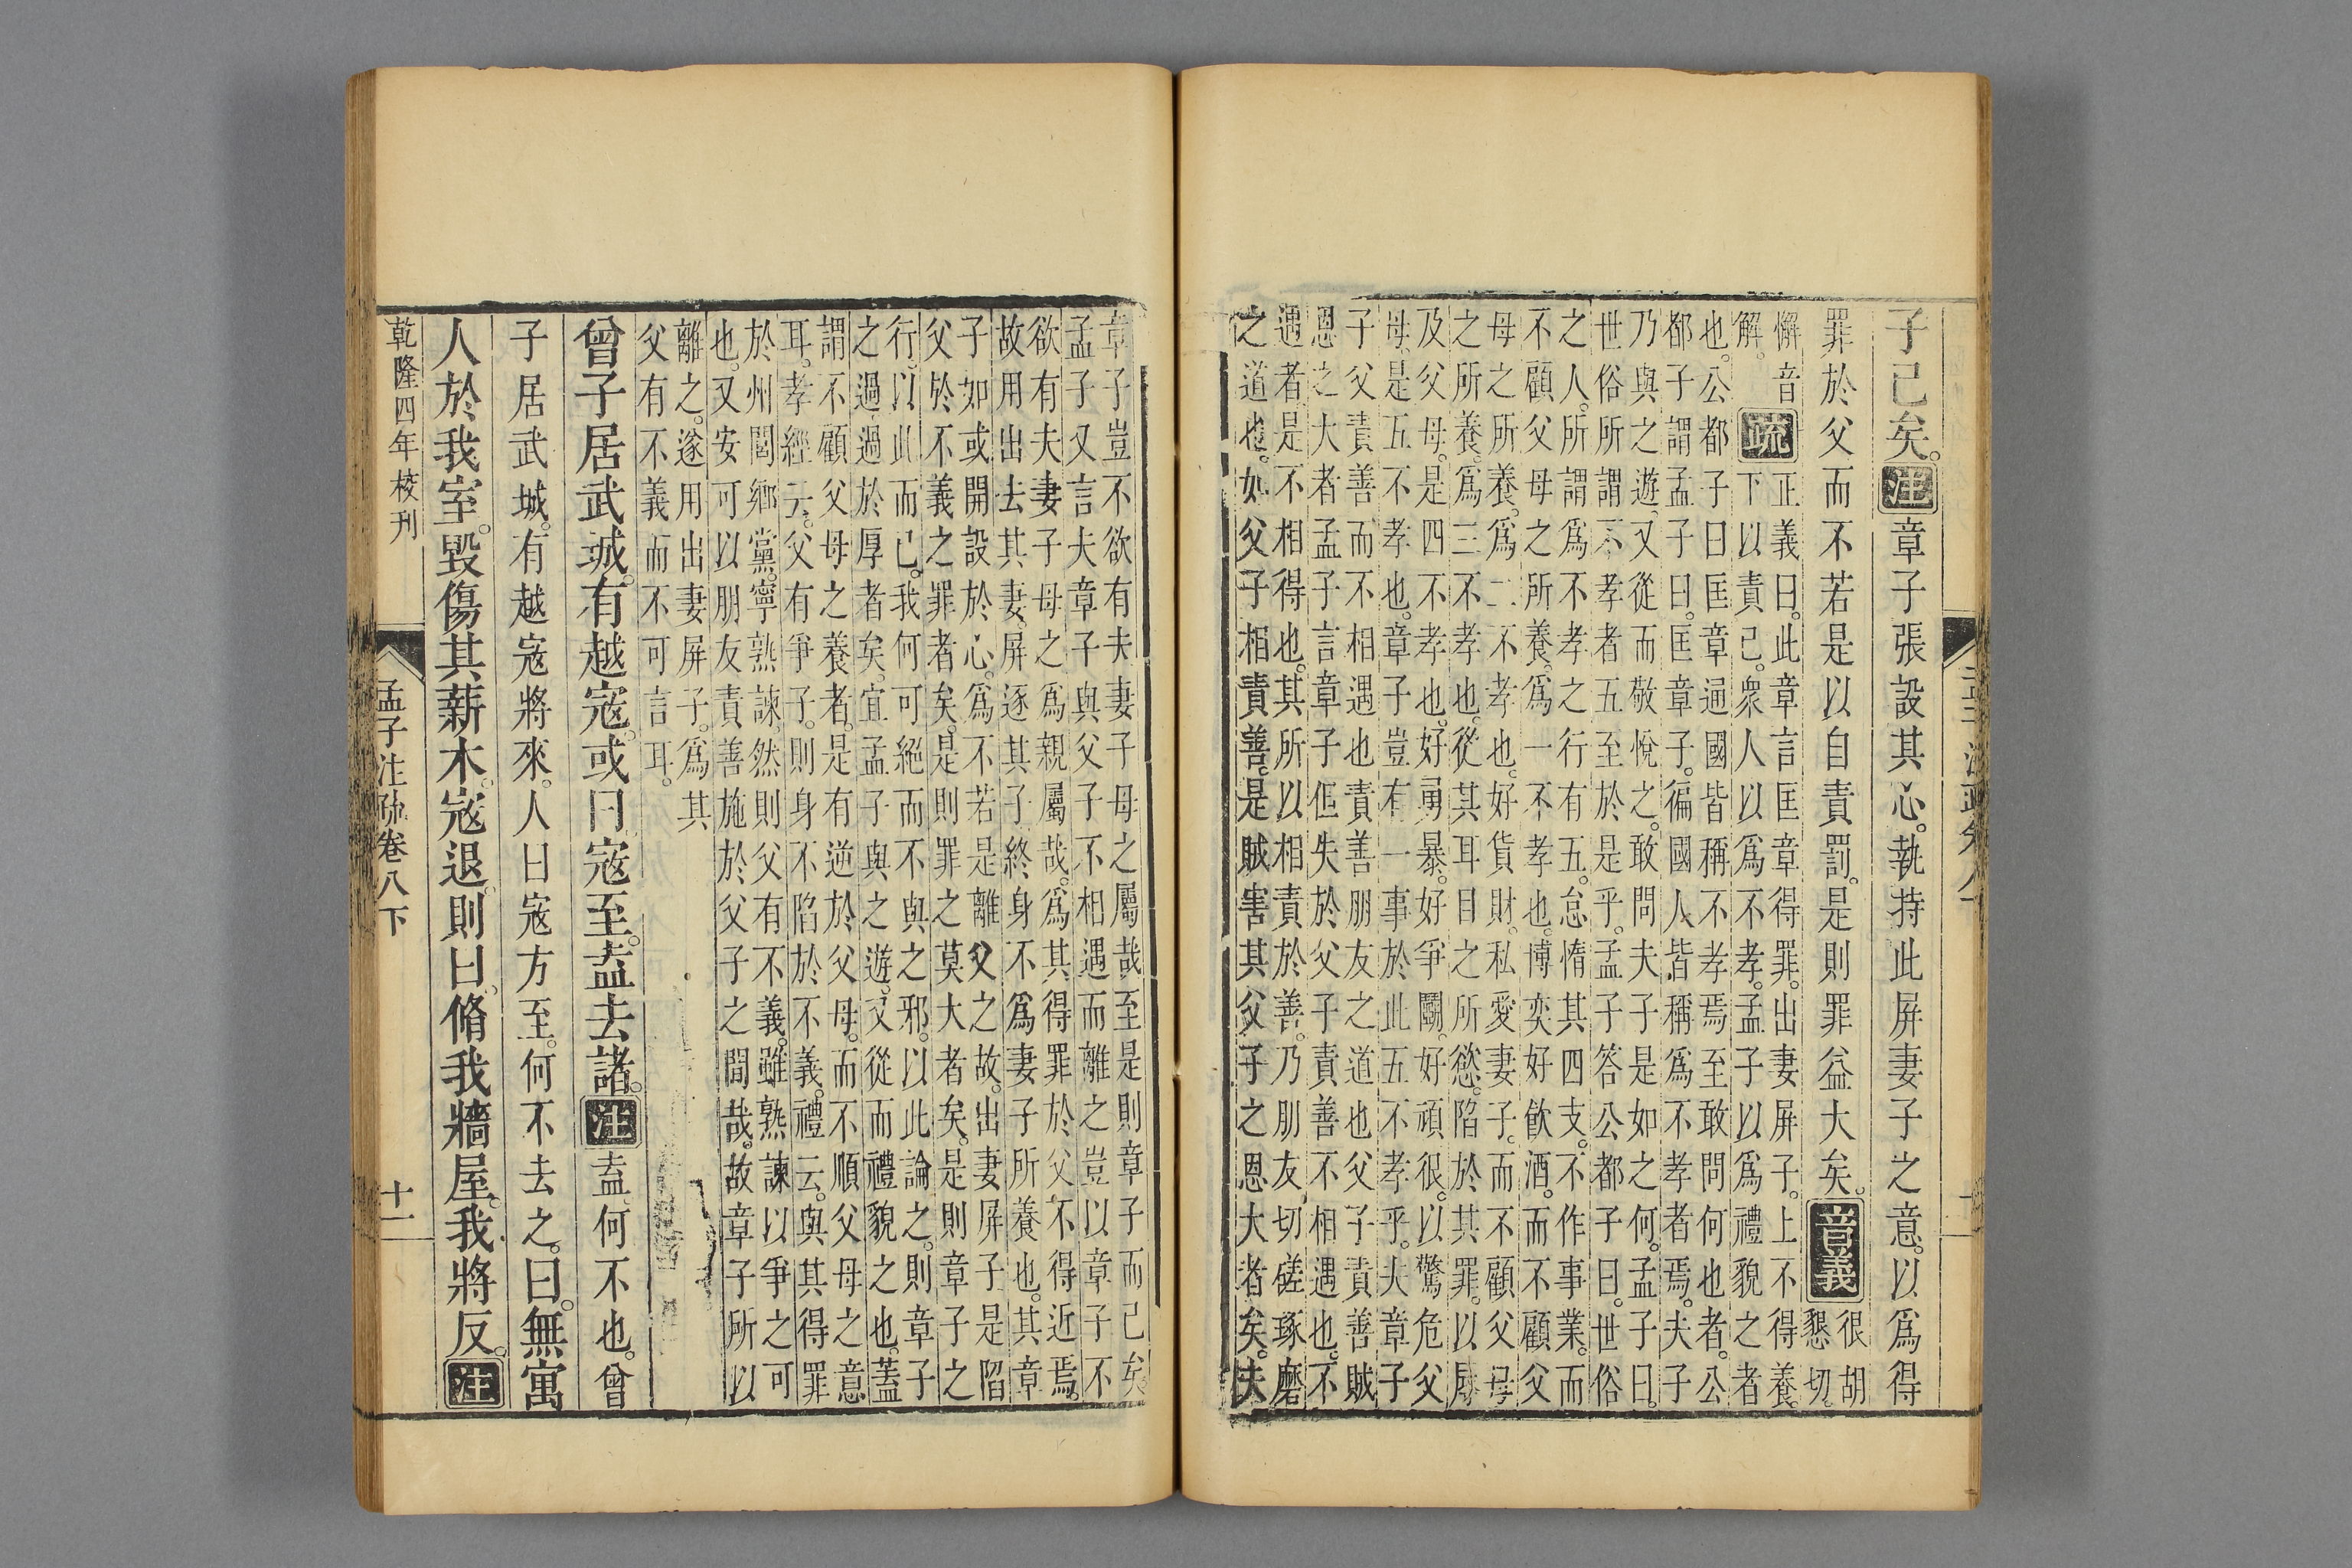 子已矣。注章子張設其心。執持此屏妻子之意。以爲得
罪於父而不若是以自責罰。是則罪益大矣。音義很胡
懇切。
懈音
解。
疏正義曰。此章言匡章得罪。出妻屏子。上不得養。
下以責己。衆人以爲不孝。孟子以爲禮貌之者
也。公都子曰匡章通國皆稱不孝焉至敢問何也者。公
都子謂孟子曰。匡章子。徧國人皆稱爲不孝者焉。夫子
乃與之遊。又從而敬悅之。敢問夫子是如之何。孟子曰。
世俗所謂不孝者五至於是乎。孟子答公都子曰。世俗
之人。所謂爲不孝之行有五。怠惰其四支。不作事業。而
不顧父母之所養。爲一不孝也。博奕好飲酒。而不顧父
母之所養。爲二不孝也。好貨財。私愛妻子。而不顧父母
之所養。爲三不孝也。從其耳目之所慾。陷於其罪。以辱
及父母。是四不孝也。好勇暴。好爭鬭。好頑很。以驚危父
母。是五不孝也。章子豈有一事於此五不孝乎。夫章子
子父責善而不相遇也責善朋友之道也父子責善賊
恩之大者孟子言章子但失於父子責善不相遇也。不
遇者是不相得也。其所以相責於善。乃朋友切磋琢磨
之道也。如父子相責善。是賊害其父子之恩大者矣。夫
章子豈不欲有夫妻子母之屬哉至是則章子而已矣
孟子又言夫章子與父子不相遇而離之豈以章子不
欲有夫妻子母之爲親屬哉。爲其得罪於父不得近焉。
故用出去其妻。屏逐其子終身不爲妻子所養也。其章
子如或開設於心。爲不若是離父之故。出妻屏子是陷
父於不義之罪者矣。是則罪之莫大者矣。是則章子之
行。以此而已。我何可絕而不與之邪。以此論之。則章子
之過過於厚者矣。宜孟子與之遊。又從而禮貌之也。蓋
謂不顧父母之養者。是有逆於父母。而不順父母之意
耳。孝經云。父有爭子。則身不陷於不義。禮云。與其得罪
於州閭鄉黨。寧熟諫。然則父有不義。雖熟諫以爭之可
也。又安可以朋友責善施於父子之間哉。故章子所以
離之。遂用出妻屏子。爲其
父有不義而不可言耳。
曾子居武城。有越寇。或曰寇至。盍去諸。注盍何不也。曾
子居武城。有越寇將來。人曰寇方至。何不去之。曰。無寓
人於我室。毀傷其薪木。寇退。則曰。脩我牆屋。我將反。注
乾隆四年校刊
孟子注疏卷八下
十一